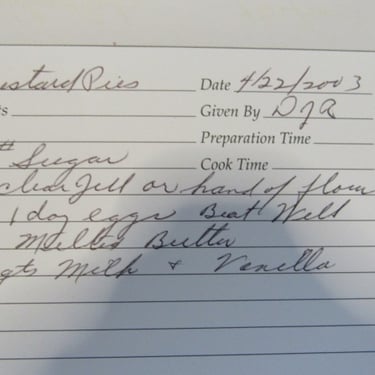 ustard Pies Date 4/22/2003
ts Given By DJA
Preparation Time
# Sugar Cook Time
clear Jell or hand of flour
1 doz eggs Beat Well
Melted Butter
qts Milk + Vanilla